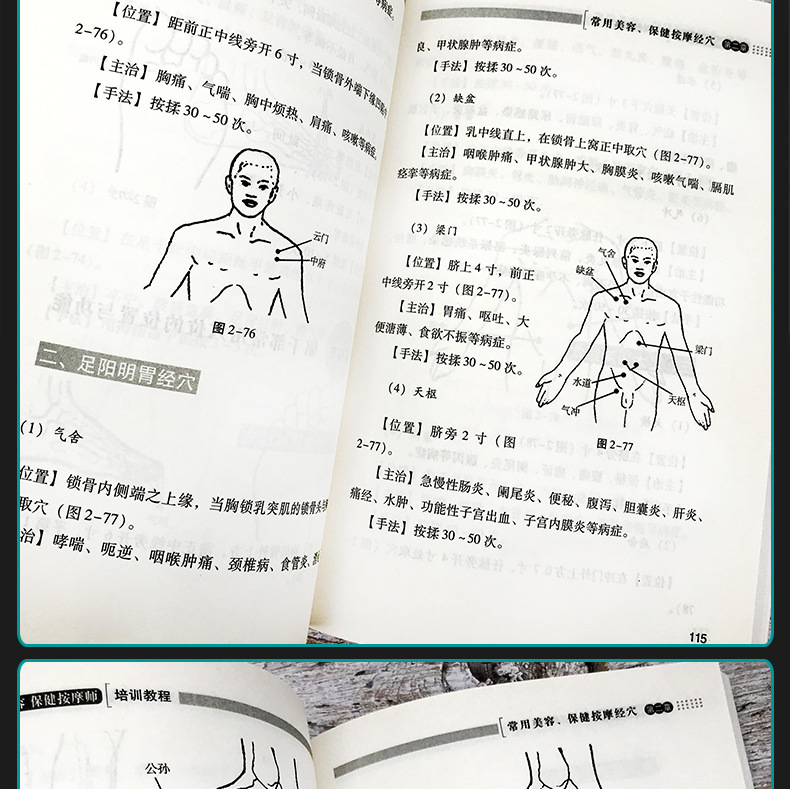 【位置】距前正中线旁开6寸，当锁骨外端下缘
2-76）。
【主治】胸痛、气喘、胸中烦热、肩痛、咳嗽等病症。
【手法】按揉30~50次。
云门
中府
图2-76
二、足阳明胃经穴
（1）气舍
位置】锁骨内侧端之上缘，当胸锁乳突肌的锁骨头
取穴（图2-77）。
治】哮喘、呃逆、咽喉肿痛、颈椎病、食管炎、
常用美容、保健按摩经穴 第二章
良、甲状腺肿等病症。
【手法】按揉30~50次。
（2）缺盆
【位置】乳中线直上，在锁骨上窝正中取穴（图2-77）。
【主治】咽喉肿痛、甲状腺肿大、胸膜炎、咳嗽气喘、膈肌
痉挛等病症。
【手法】按揉30~50次。
（3）梁门
【位置】脐上4寸，前正
中线旁开2寸（图2-77）。
【主治】胃痛、呕吐、大
便溏薄、食欲不振等病症。
【手法】按揉30~50次。
气舍
缺盆
梁门
水道
天枢
气冲
图2-77
（4）天枢
【位置】脐旁2寸（图
2-77）。
【主治】急慢性肠炎、阑尾炎、便秘、腹泻、胆囊炎、肝炎、
痛经、水肿、功能性子宫出血、子宫内膜炎等病症。
【手法】按揉30~50次。
115
保健按摩师 培训教程
公孙
常用美容、保健按摩经穴 第二章